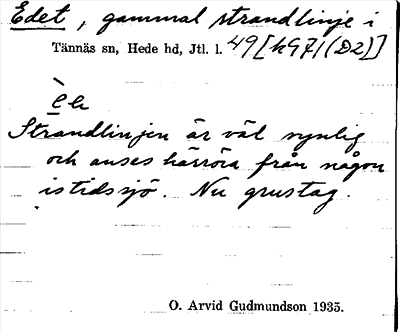 Edet, gammal strandlinje i
Tännäs sn, Hede hd, Jtl. l. 49[kG71(D2)]
èh
Strandlinjen är väl synlig
och anses härröra från någon
istidssjö. Nu grustag.
O. Arvid Gudmundson 1935.